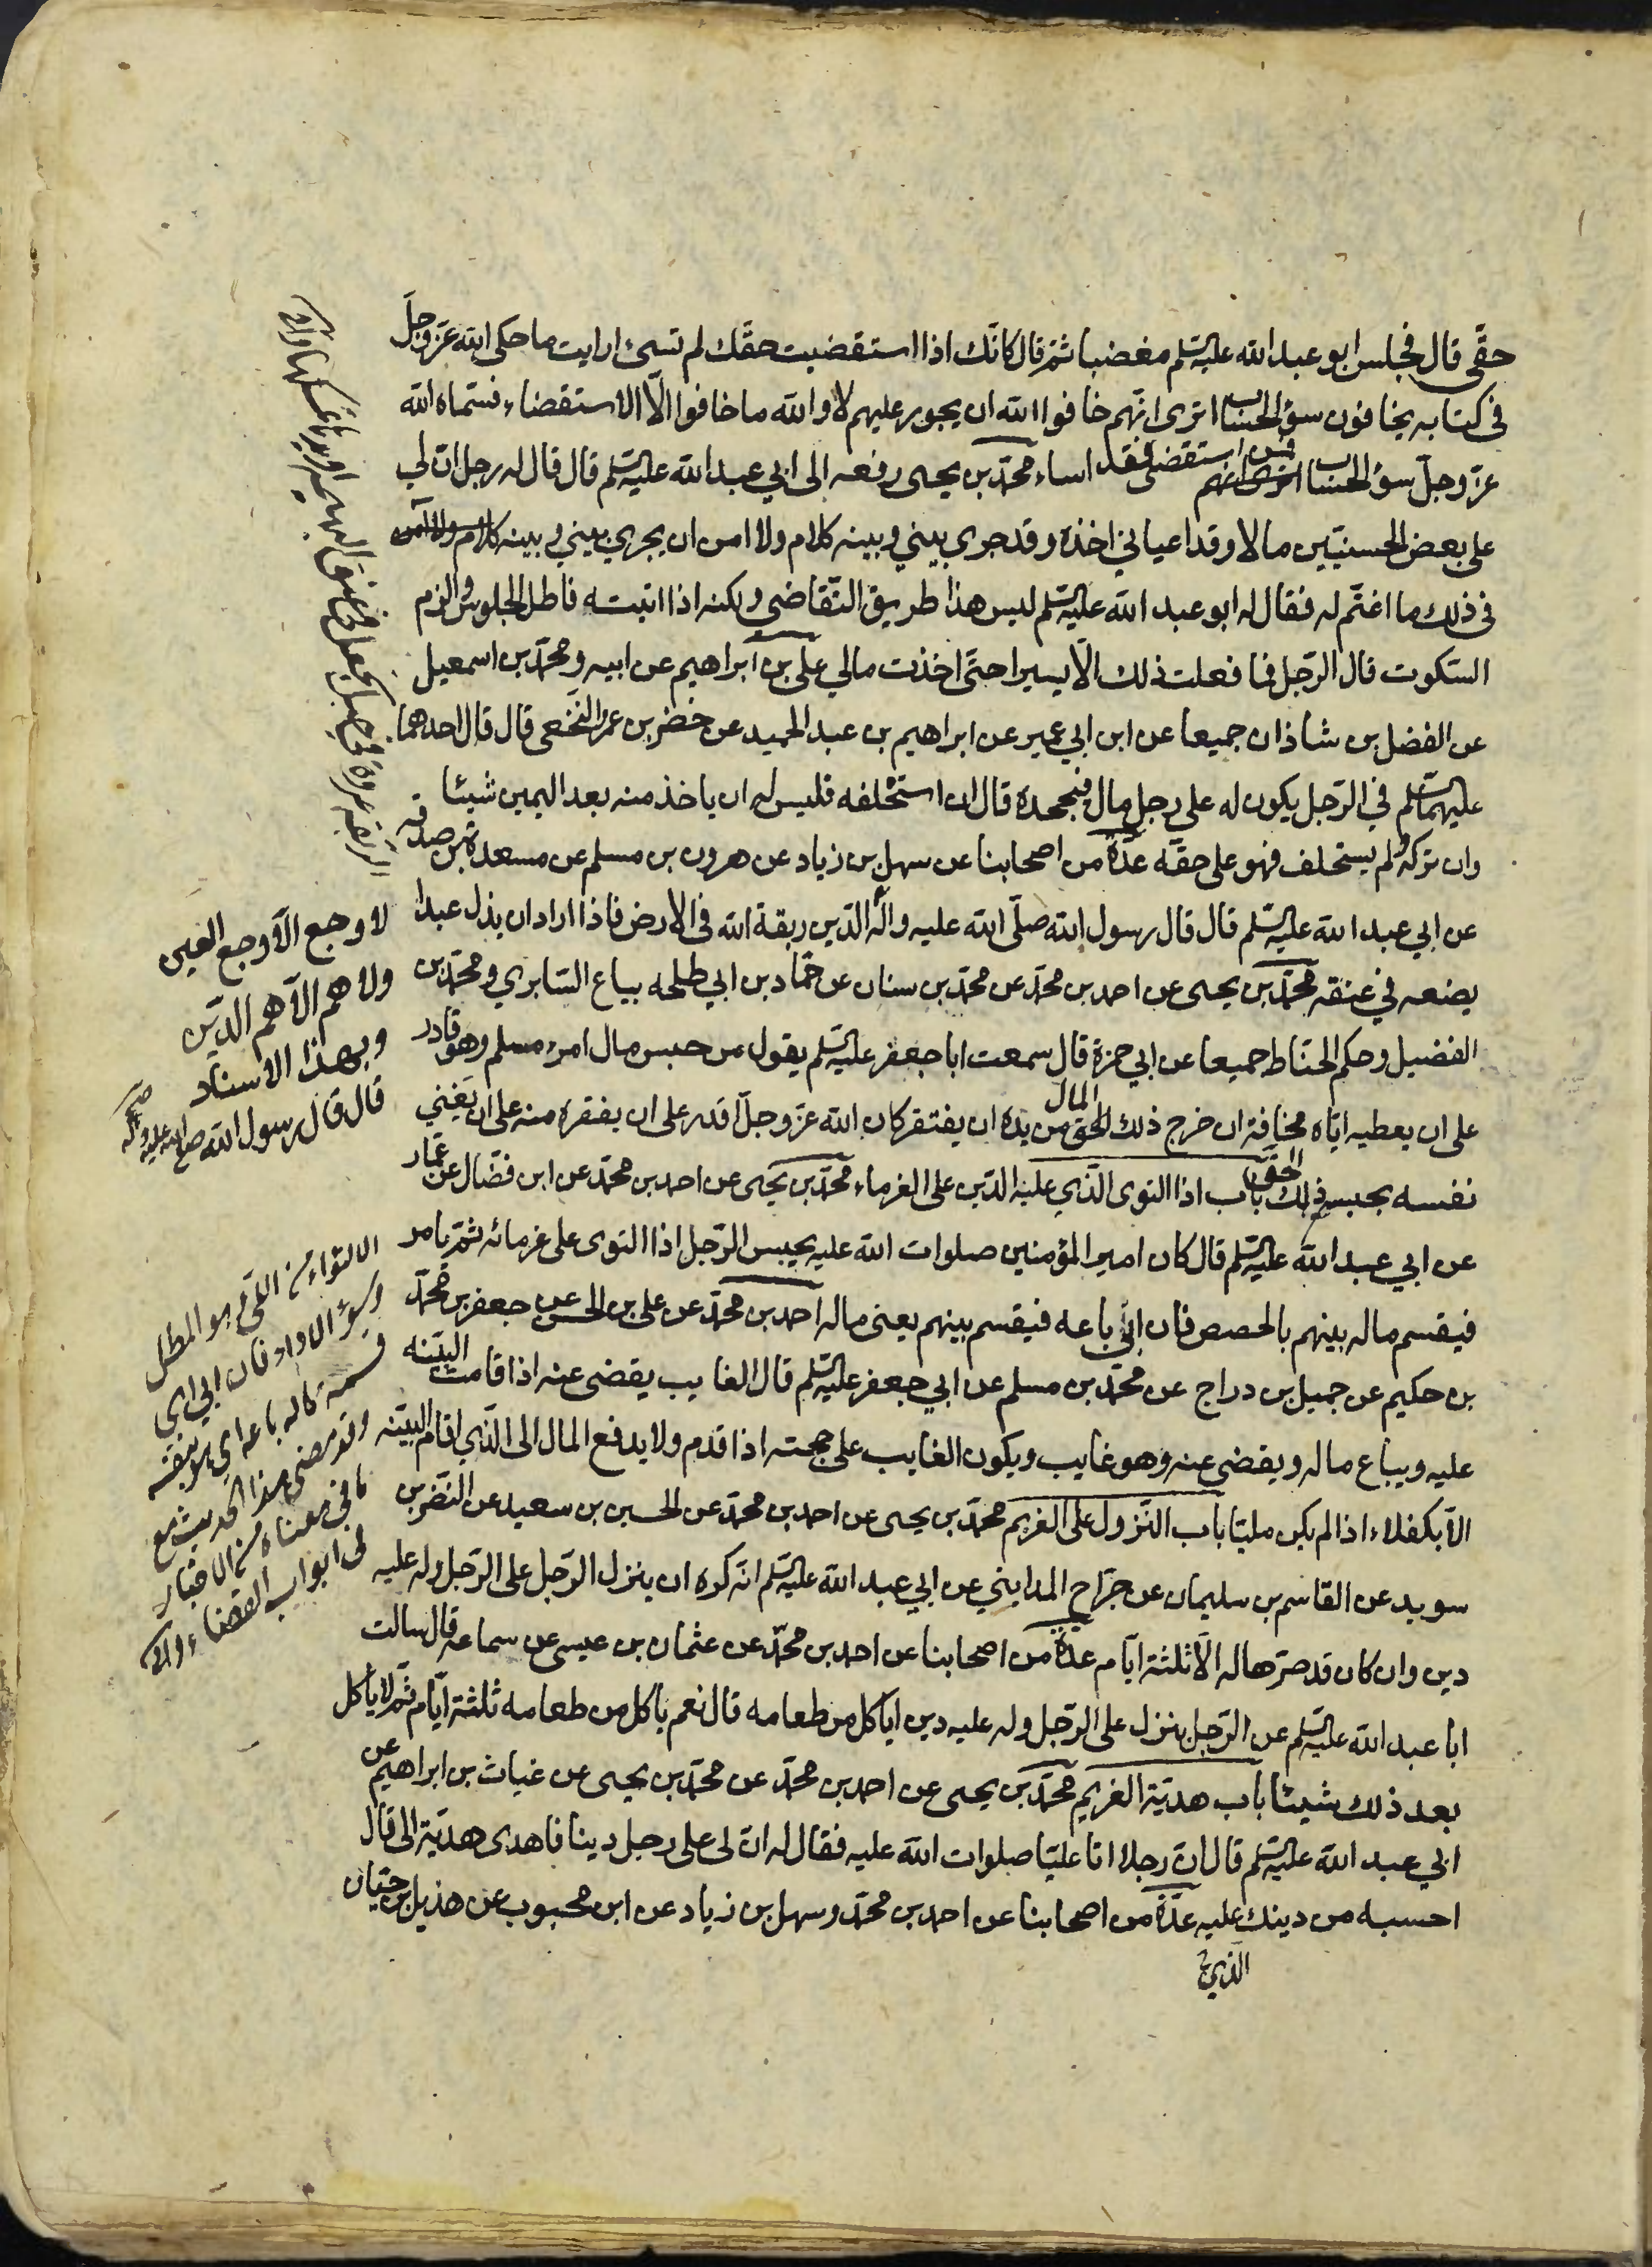 حقّى قال فجلس ابو عبد الله عليه السلم مغضبا ثمّ قال كانّك اذا استقضيت حقّك لم تسئ ارايت ما حكى الله عزّ وجلّ
فى كتابه يخافون سؤ الحساب اترى انّهم خافوا الله ان يجور عليهم لا والله ما خافوا الّا الاستقضاء فسمّاه الله
عزّ وجلّ سؤ الحساب فمن استقضى فقد اساء محمّد بن يحيى رفعه الى ابي عبد الله عليه السلم قال قال له رجل انّ لي
على بعض الحسنيّين مالا وقد اعياني اخذه وقد جرى بيني وبينه كلام ولا امن ان يجري بيني وبينه
فى ذلك ما اغتمّ له فقال له ابو عبد الله عليه السلم ليس هذا طريق التّقاضى ولكنه اذا اتيته فاطل الجلوس والزم
السّكوت قال الرّجل فما فعلت ذلك الّا يسيرا حتّى اخذت مالي على بن ابراهيم عن ابيه ومحمّد بن اسمعيل
عن الفضل بن شاذان جميعا عن ابن ابي عمير عن ابراهيم بن عبد الحميد عن خضر بن عمرو النّخعى قال قال احدهما
عليهما السلم فى الرّجل يكون له على رجل مال فيجحده قال ان استحلفه فليس له ان ياخذ منه بعد اليمين شيئا
وان تركه ولم يستحلف فهو على حقّه عدّة من اصحابنا عن سهل بن زياد عن هرون بن مسلم عن مسعدة بن صدقه
عن ابي عبد الله عليه السلم قال قال رسول الله صلّى الله عليه واله الدّين ربقة الله فى الارض فاذا اراد ان يذل عبدا
يضعه في عنقه محمّد بن يحيى عن احمد بن محمّد عن محمّد بن سنان عن حمّاد بن ابي طلحه بياع السّابري ومحمّد بن
الفضيل وحكم الحنّاط جميعا عن ابي حمزة قال سمعت ابا جعفر عليه السلم يقول من حبس مال امرء مسلم وهو قادر
على ان يعطيه ايّاه مخافة ان خرج ذلك الحق من يده ان يفتقر كان الله عزّ وجلّ اقدر على ان يفقره منه على ان يغني
نفسه بحبس ذلك الحقّ باب اذا التوى الّذي عليه الدّين على الغرماء محمّد بن يحيى عن احمد بن محمّد عن ابن فضّال عن عمّار
عن ابي عبد الله عليه السلم قال كان امير المؤمنين صلوات الله عليه يحبس الرّجل اذا التوى على غرمائه ثمّ يامر
فيقسم ماله بينهم بالحصص فان ابى باعه فيقسم بينهم يعنى ماله احمد بن محمّد عن على بن الحسن عن جعفر بن محمّد
بن حكيم عن جميل بن دراج عن محمّد بن مسلم عن ابي جعفر عليه السلم قال الغايب يقضى عنه اذا قامت البيّنه
عليه ويباع ماله ويقضى عنه وهو غايب ويكون الغايب على حجته اذا قدم ولا يدفع المال الى الّذي اقام البيّنه
الّا بكفلاء اذا لم يكن مليّا باب النّزول على الغريم محمّد بن يحيى عن احمد بن محمّد عن الحسين بن سعيد عن النّضر بن
سويد عن القاسم بن سليمان عن جرّاح المدايني عن ابي عبد الله عليه السلم انّه كره ان ينزل الرّجل على الرّجل وله عليه
دين وان كان قد صرّها له الّا ثلثة ايّام عدّة من اصحابنا عن احمد بن محمّد عن عثمان بن عيسى عن سماعه قال سالت
ابا عبد الله عليه السلم عن الرّجل ينزل على الرّجل وله عليه دين اياكل من طعامه قال نعم ياكل من طعامه ثلثة ايّام ثمّ لا ياكل
بعد ذلك شيئا باب هديّة الغريم محمّد بن يحيى عن احمد بن محمّد عن محمّد بن يحيى عن غياث بن ابراهيم عن
ابي عبد الله عليه السلم قال انّ رجلا اتا عليّا صلوات الله عليه فقال له انّ لى على رجل دينا فاهدى هديّة الى قال
احسبه من دينك عليه عدّة من اصحابنا عن احمد بن محمّد وسهل بن زياد عن ابن محبوب عن هذيل بن حيّان
لا وجع الّا وجع العين
ولا همّ الّا همّ الدّين
وبهذا الاسناد
قال قال رسول الله صلى الله عليه واله
الالتواء من اللىّ هو المطل
وسوء الاداء فان ابى اى
قسمة ماله باعه اى
وقد مضى هذا الحديث مع
ما فى معناه من الاخبار
فى ابواب القضاء